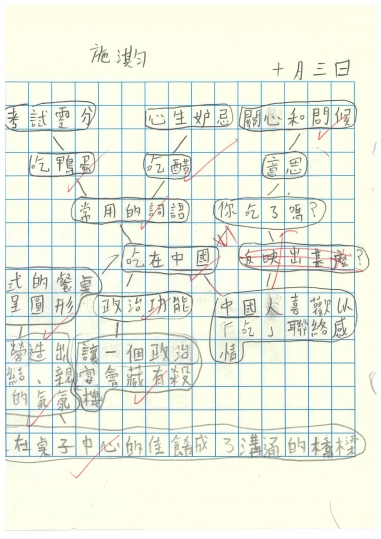 施淇勻
十月三日
考試零分 心生妒忌 關心和問候
吃鴨蛋 吃醋 意思
常用的詞語 你吃了嗎？
吃在中國 反映出甚麼？
式的餐桌
呈圓形 政治功能 中國人喜歡以
「吃」聯絡感
情
營造出 讓一個政治
結、親 宴會藏有殺
的氣氛 機
在桌子中心的佳餚成了溝通的橋樑